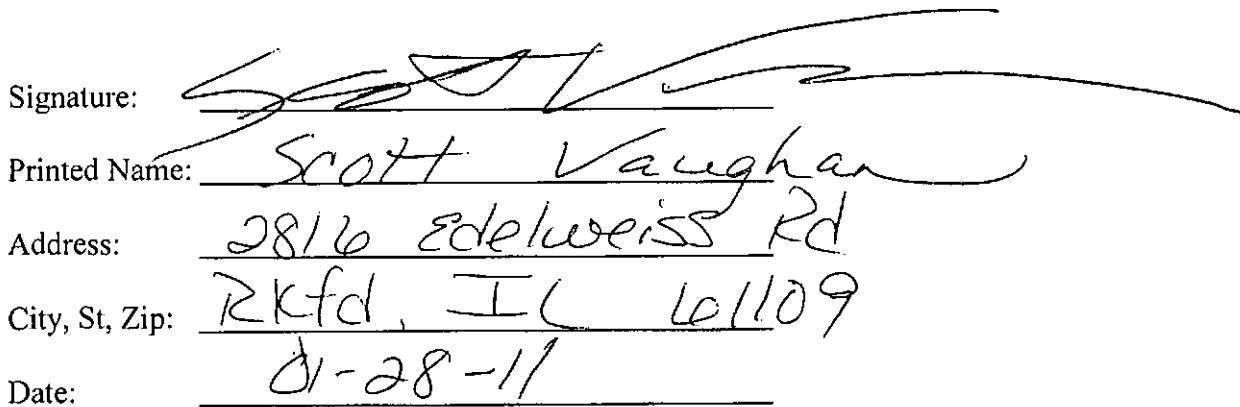 Signature: Scott V
Printed Name: Scott Vaughan
Address: 2816 Edelweiss Rd
City, St, Zip: Rkfd, IL 61109
Date: 01-28-11